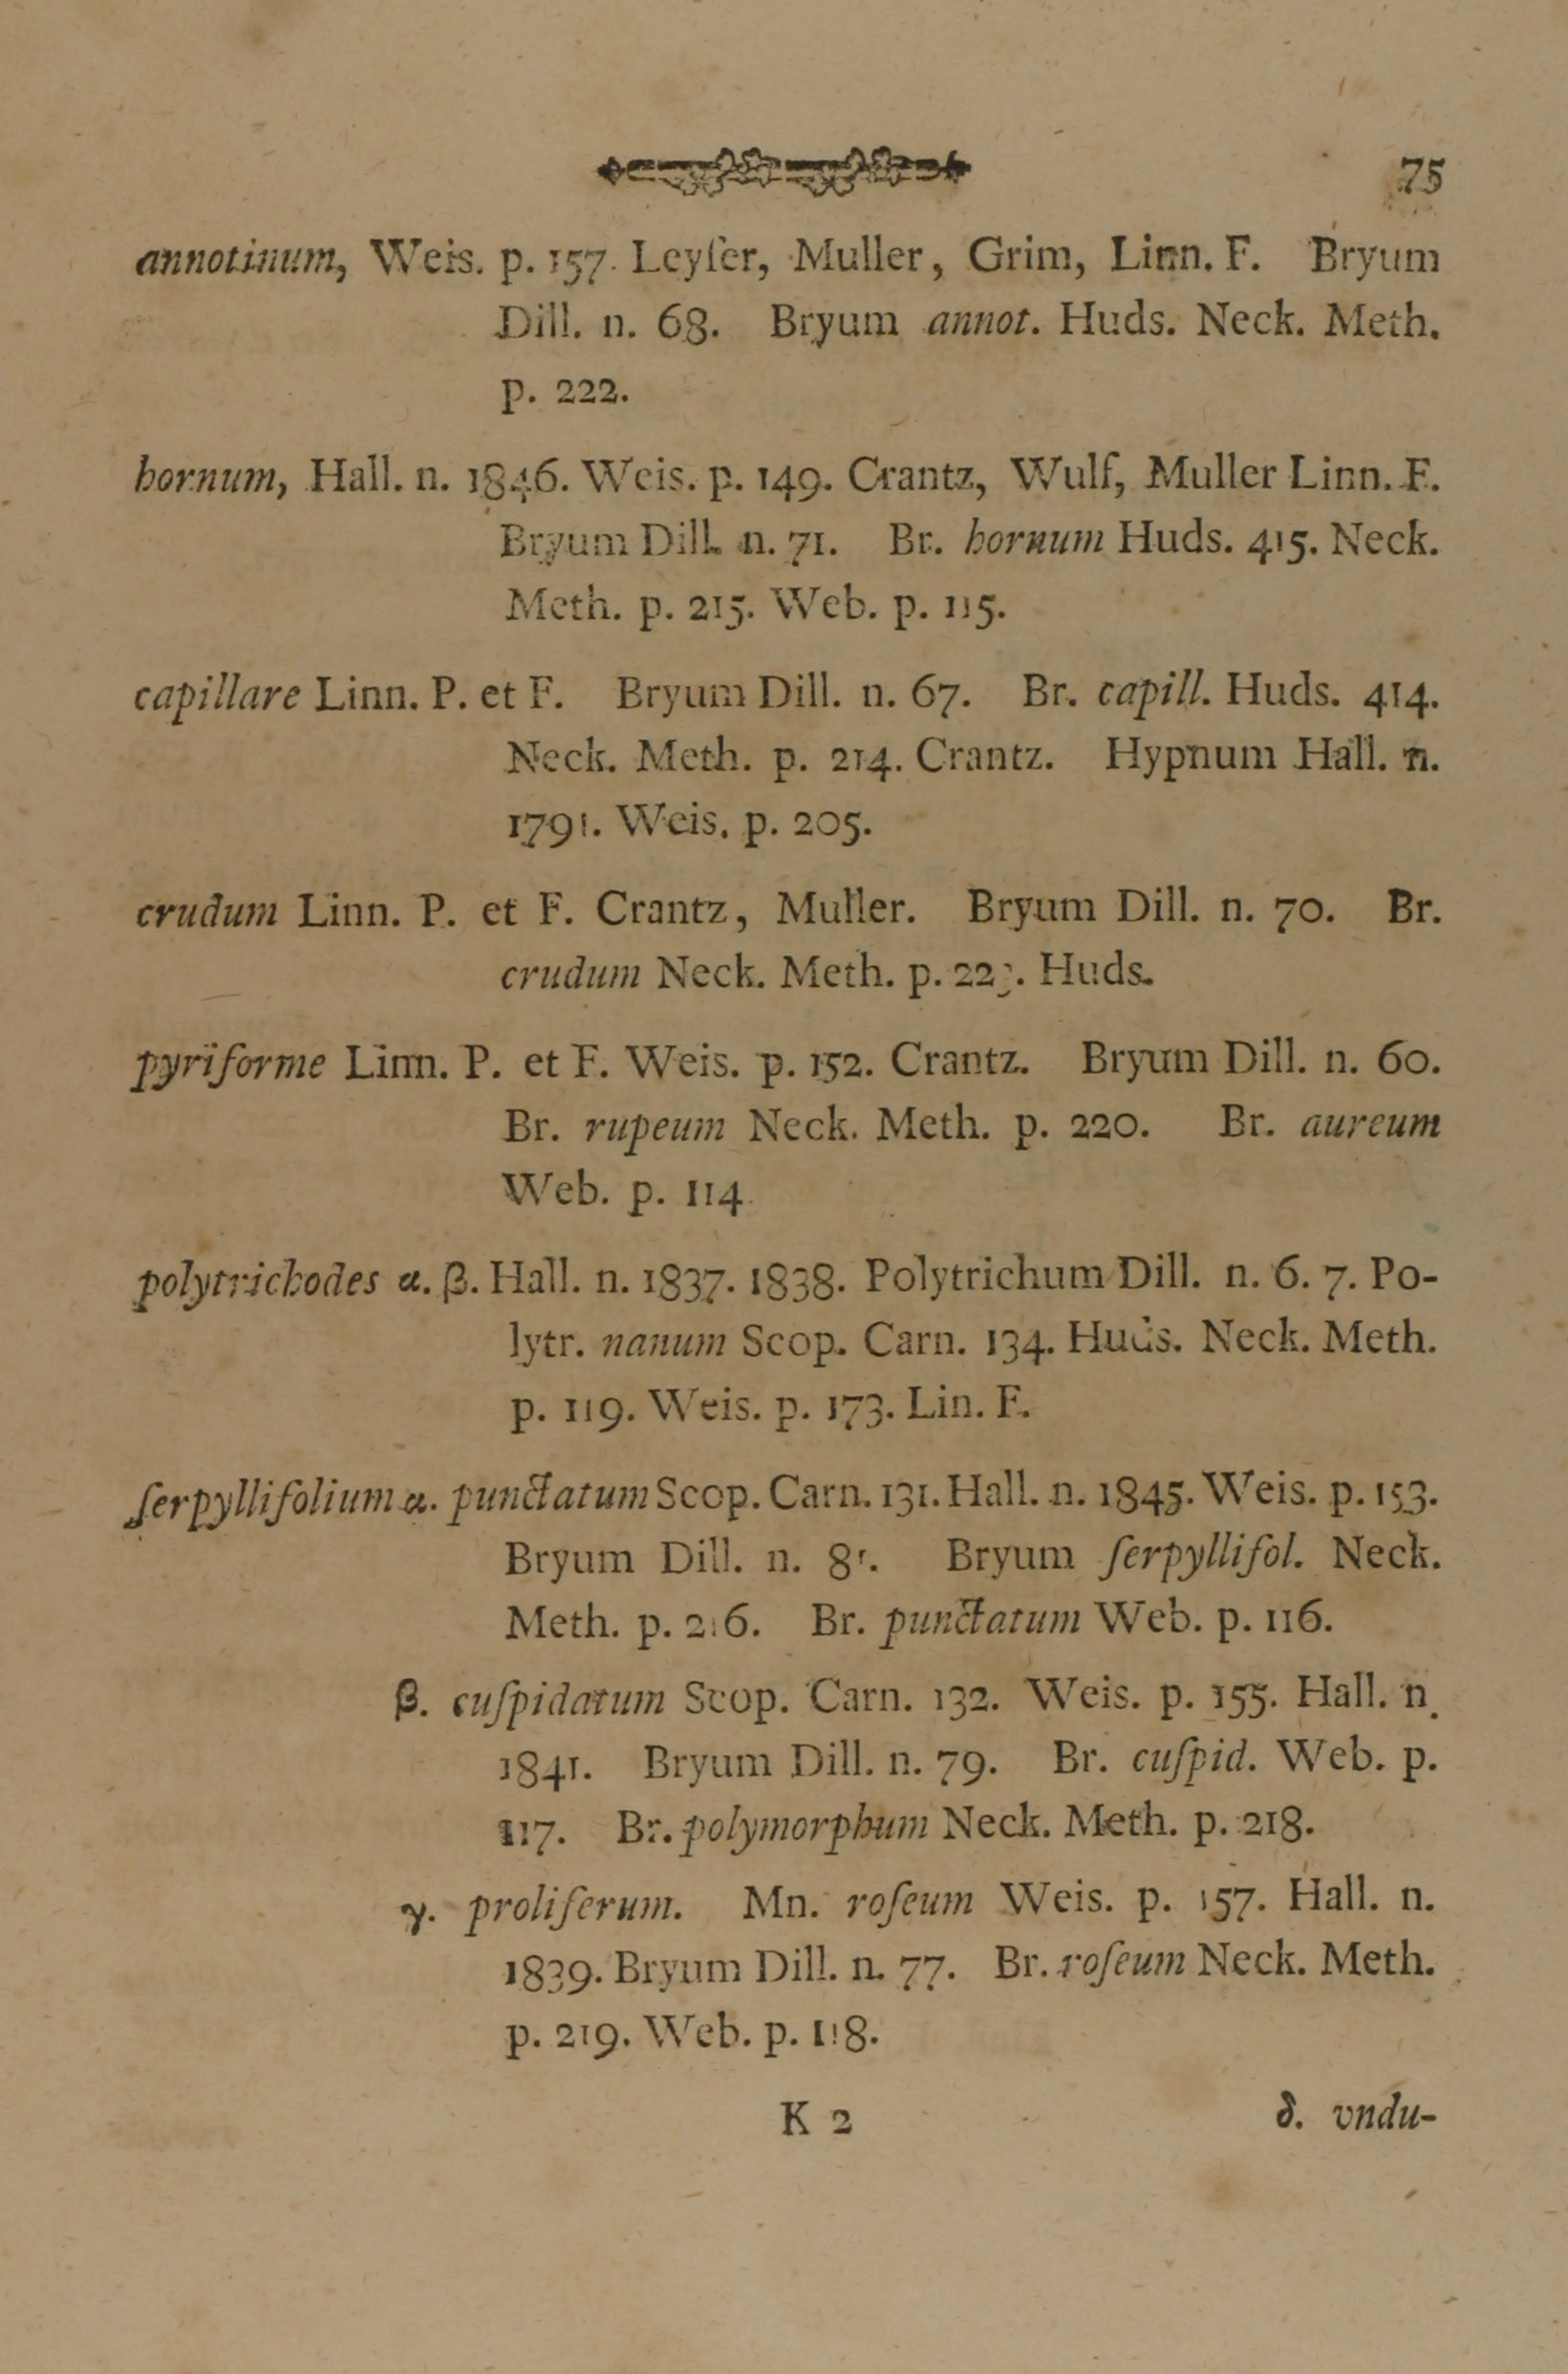 75
annotinum, Weis. p. 157. Leyſer, Muller, Grim, Linn. F. Bryum
Dill. n. 68. Bryum annot. Huds. Neck. Meth.
p. 222.
hornum, Hall. n. 1846. Weis. p. 149. Crantz, Wulf, Muller Linn. F.
Bryum Dill. n. 71. Br. hornum Huds. 415. Neck.
Meth. p. 215. Web. p. 115.
capillare Linn. P. et F. Bryum Dill. n. 67. Br. capill. Huds. 414.
Neck. Meth. p. 214. Crantz. Hypnum Hall. n.
1791. Weis. p. 205.
crudum Linn. P. et F. Crantz, Muller. Bryum Dill. n. 70. Br.
crudum Neck. Meth. p. Huds.
pyriforme Linn. P. et F. Weis. p. 152. Crantz. Bryum Dill. n. 60.
Br. rupeum Neck. Meth. p. 220. Br. aureum
Web. p. 114.
polytrichodes α. β. Hall. n. 1837. 1838. Polytrichum Dill. n. 6. 7. Po-
lytr. nanum Scop. Carn. 134. Huds. Neck. Meth.
p. 119. Weis. p. 173. Lin. F.
ſerpyllifolium α. punctatum Scop. Carn. 131. Hall. n. 1845. Weis. p. 153.
Bryum Dill. n. 81. Bryum ſerpyllifol. Neck.
Meth. p. 216. Br. punctatum Web. p. 116.
β. cuſpidatum Scop. Carn. 132. Weis. p. 155. Hall. n.
1841. Bryum Dill. n. 79. Br. cuſpid. Web. p.
117. Br. polymorphum Neck. Meth. p. 218.
γ. proliferum. Mn. roſeum Weis. p. 157. Hall. n.
1839. Bryum Dill. n. 77. Br. roſeum Neck. Meth.
p. 219. Web. p. 118.
K 2
δ. vndu-